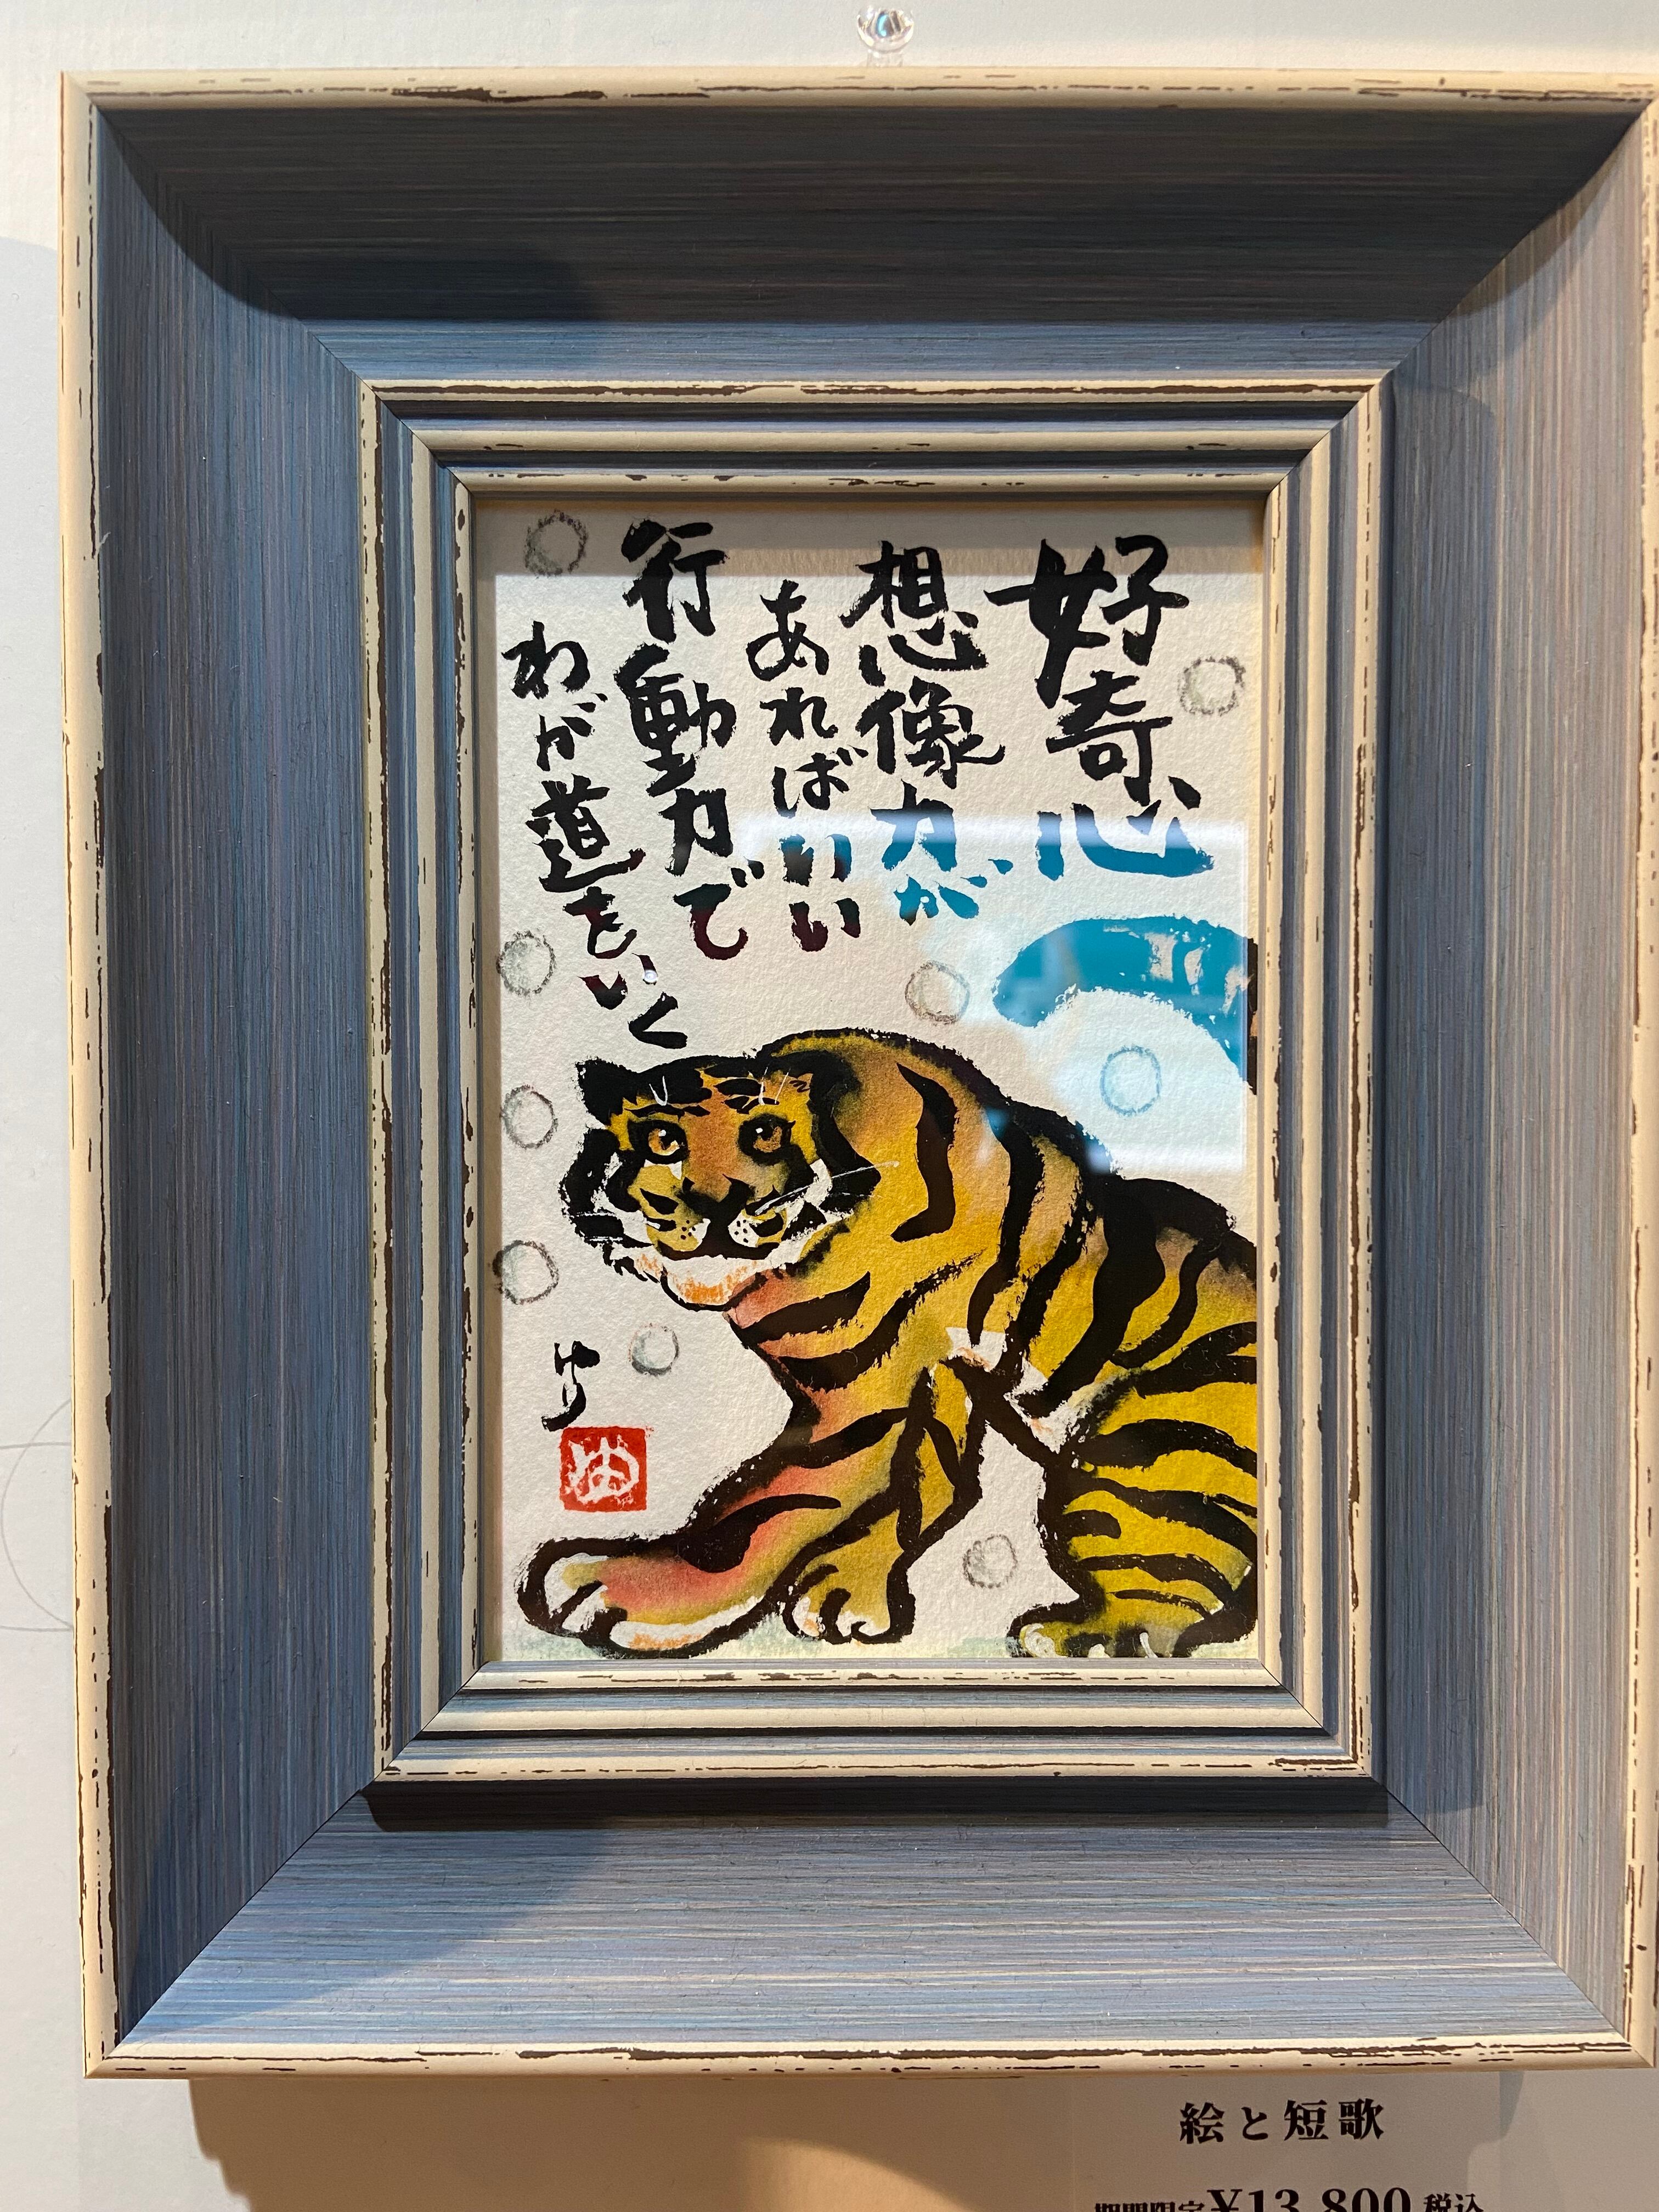 好奇心
想像力が
あればいい
行動力で
わが道をいく
ゆ
絵と短歌
期間限定¥13,800税込